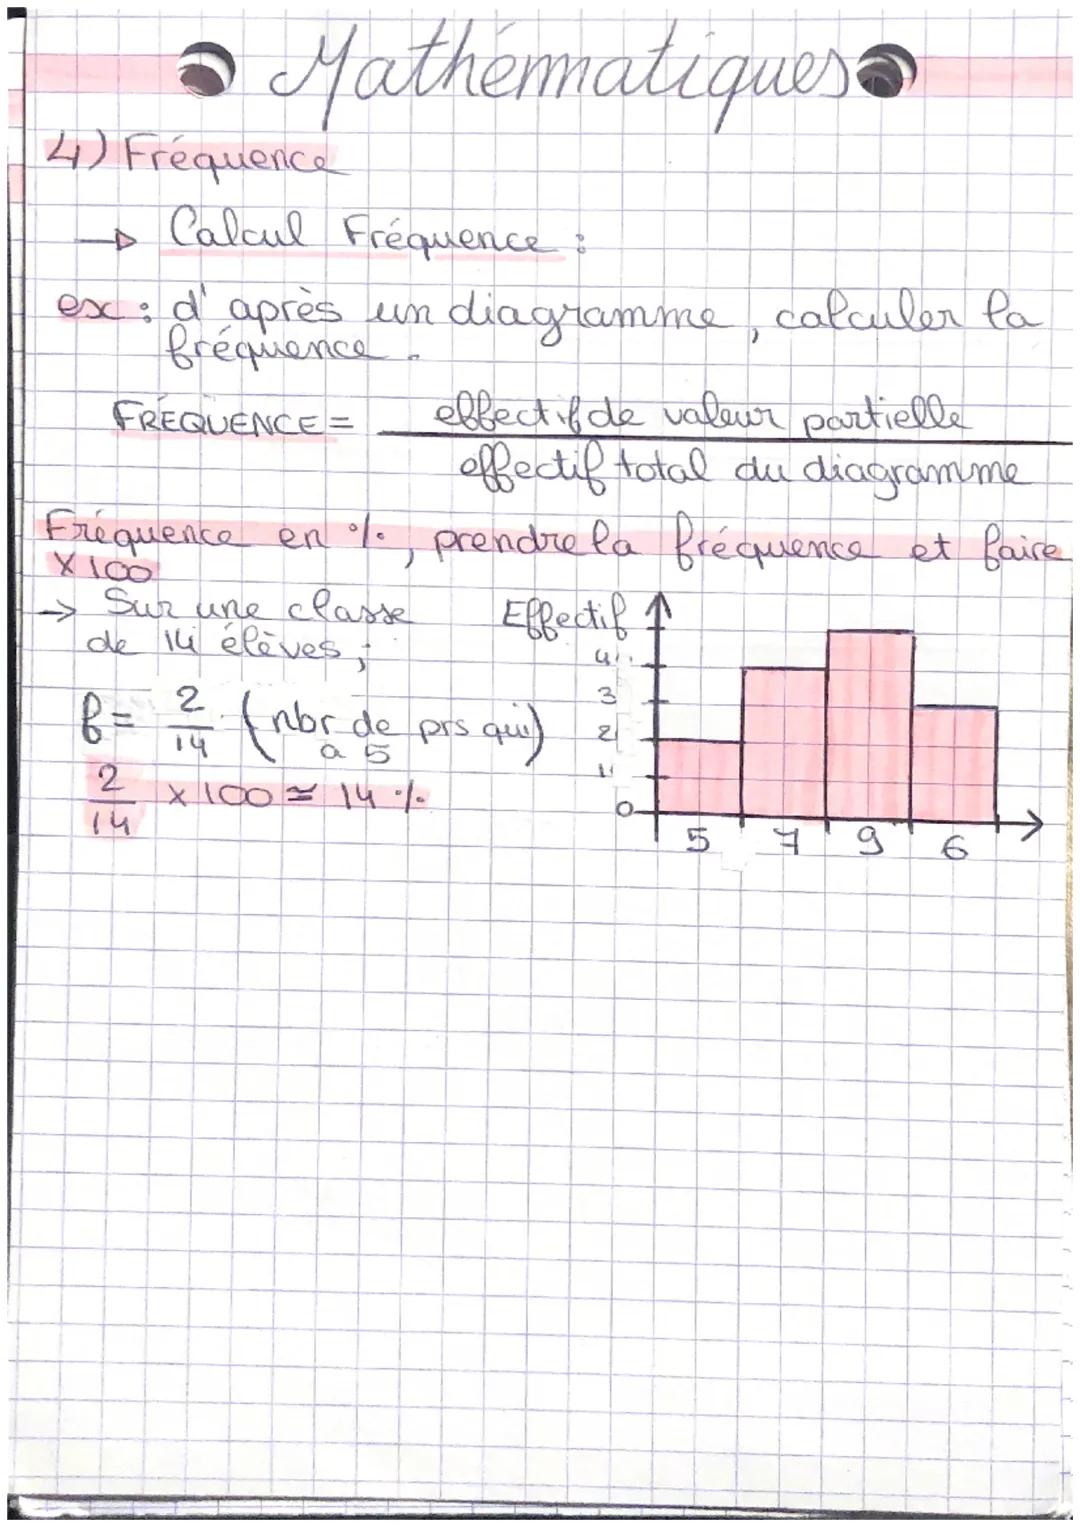 Mathématiques
4) Fréquence
→ Calcul Fréquence :
ex : d'après un diagramme, calculer la
fréquence.
FRÉQUENCE = effectif de valeur partielle
effectif total du diagramme
Fréquence en %, prendre la fréquence et faire
X 100
→ Sur une classe
de 14 élèves ;
f = 2/14 (nbr de prs qui
a 5)
2/14 x 100 ≃ 14 %
Effectif
4
3
2
1
0
5 7 9 6